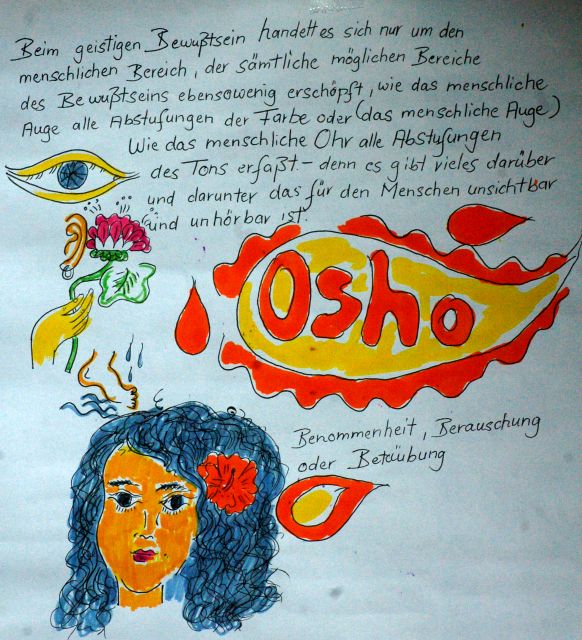 Beim geistigen Bewußtsein handelt es sich nur um den
menschlichen Bereich, der sämtliche möglichen Bereiche
des Bewußtseins ebensowenig erschöpft, wie das menschliche
Auge alle Abstufungen der Farbe oder (das menschliche Auge)
Wie das menschliche Ohr alle Abstufungen
des Tons erfaßt. - denn es gibt vieles darüber
und darunter das für den Menschen unsichtbar
und unhörbar ist.
Osho
Benommenheit, Berauschung
oder Betäubung